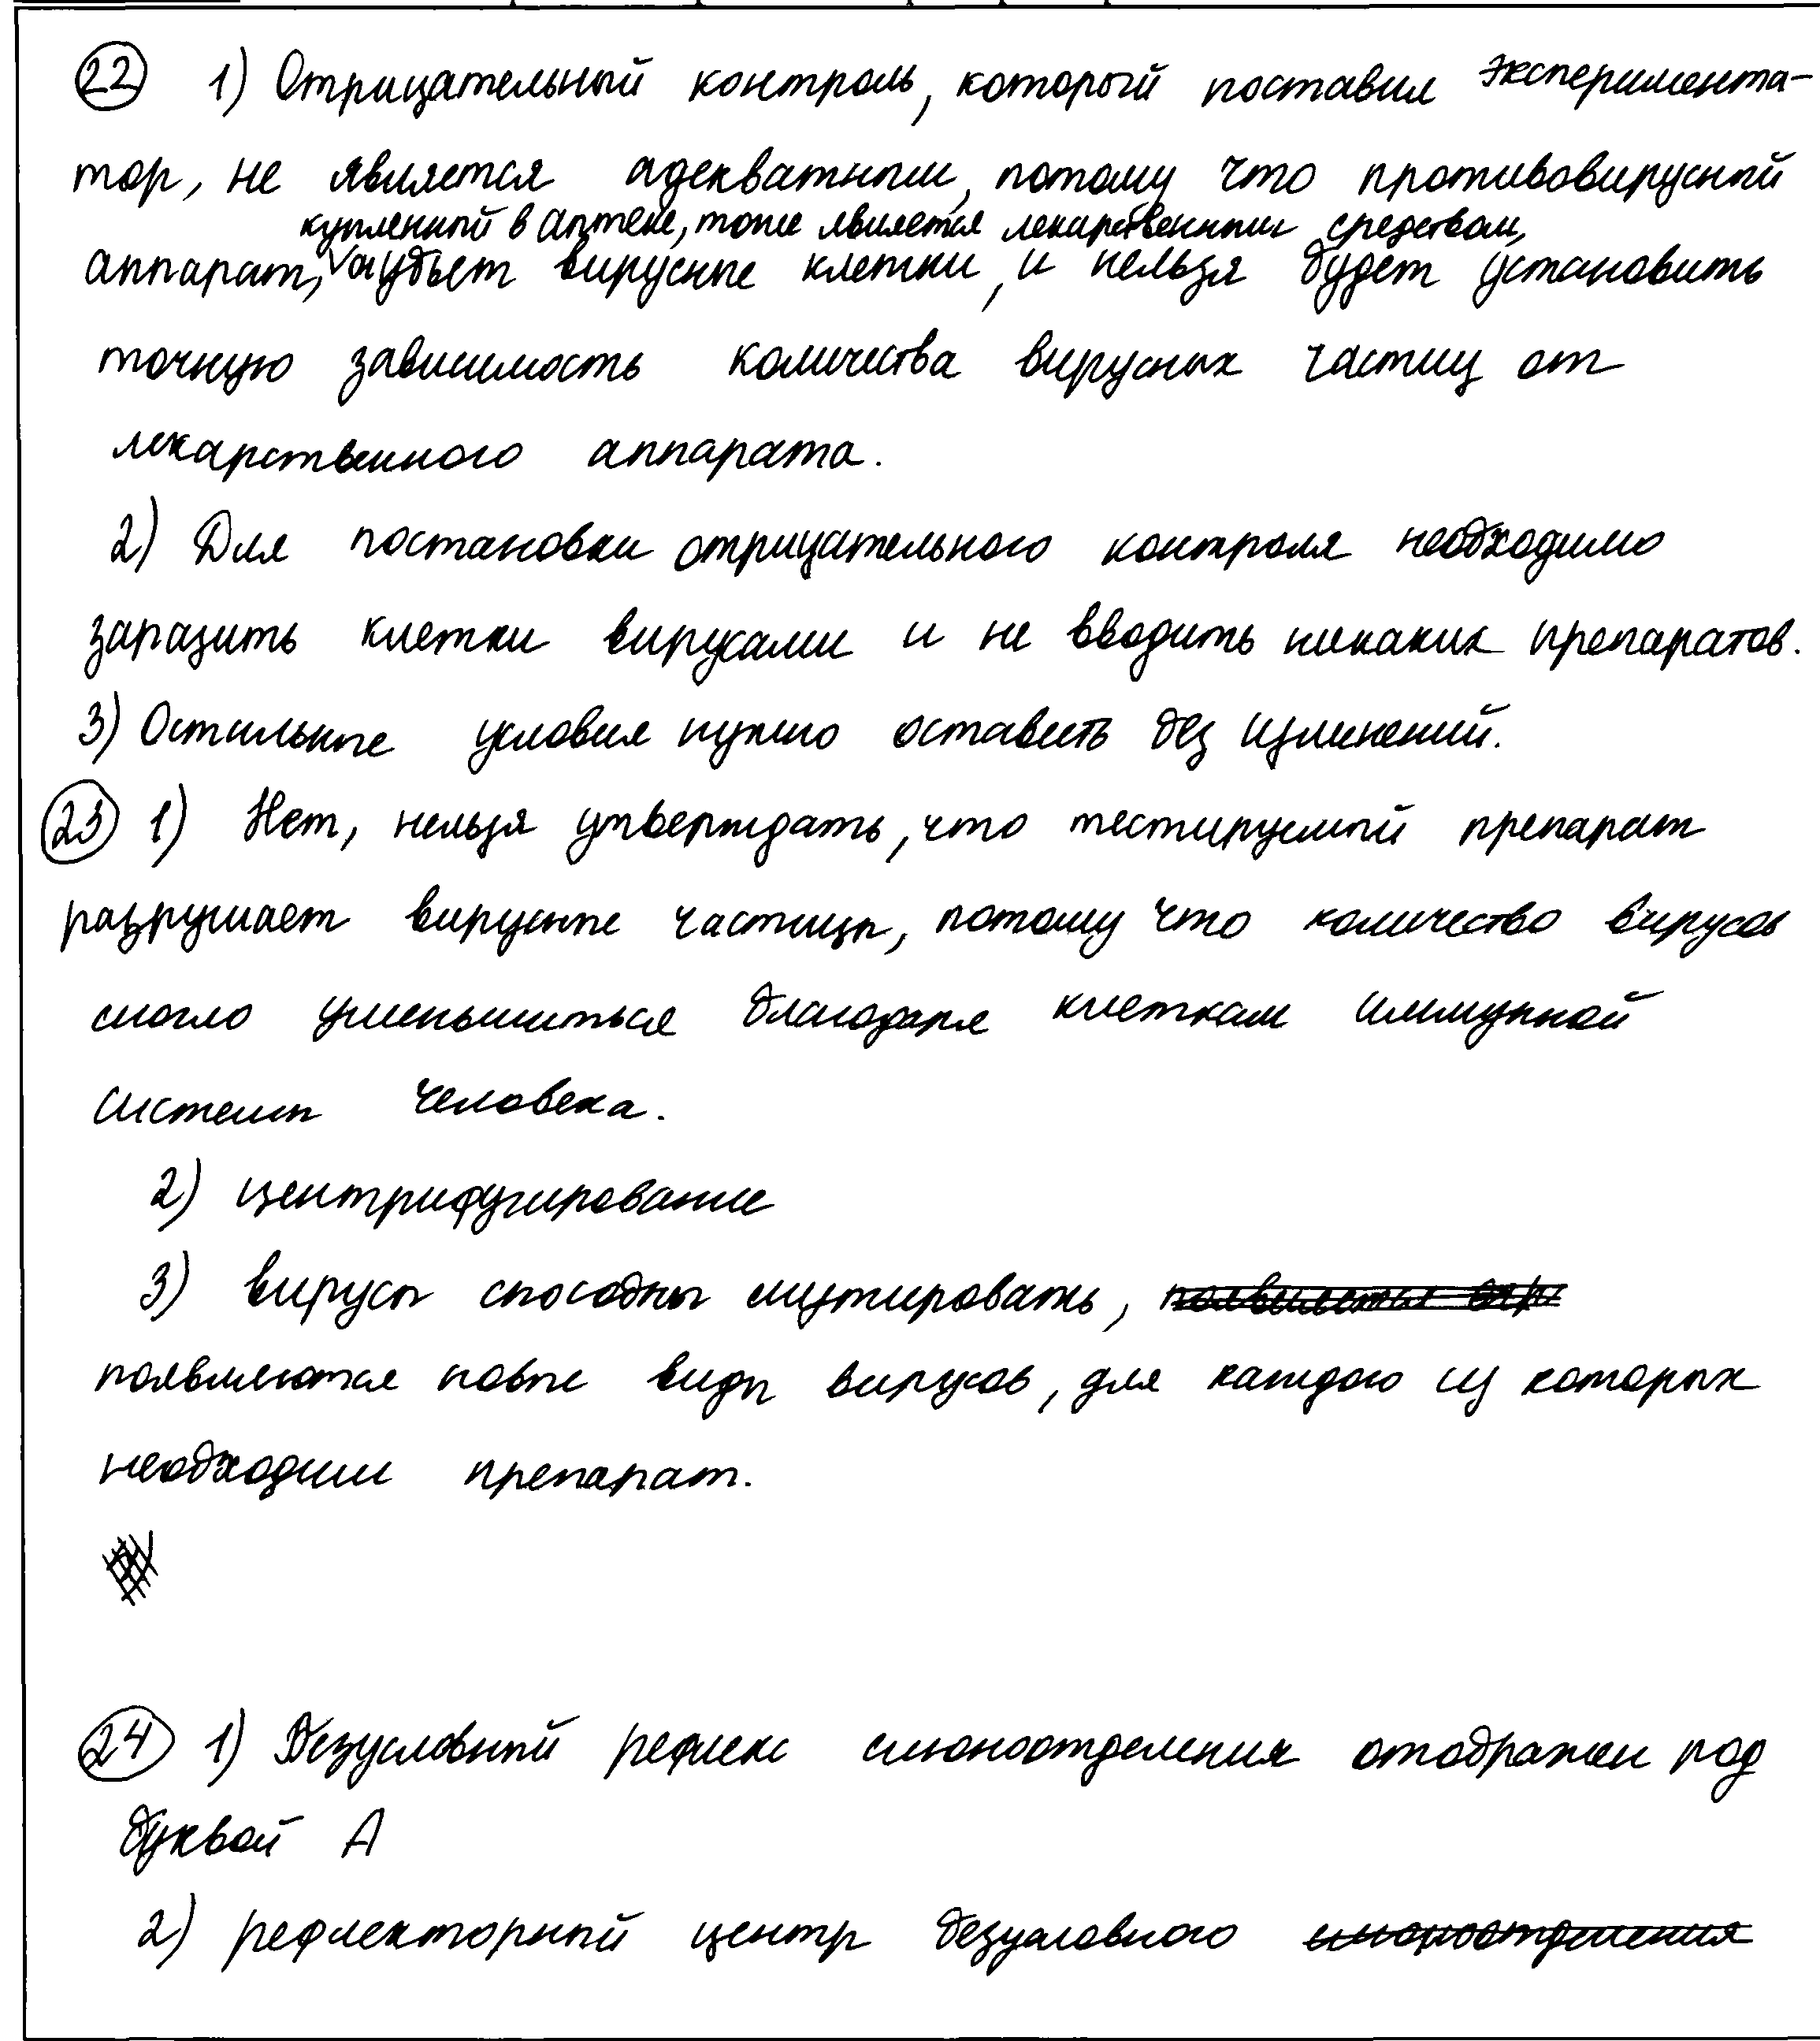 22 1) Отрицательный контроль, который поставил экспериմента-
тор, не является адекватным, потому что противовирусный
купленный в аптеке, тоже является лекарственным средством,
аппарат, убьет вирусные клетки, и нельзя будет установить
точную зависимость количества вирусных частиц от
лекарственного аппарата.
2) Для постановки отрицательного контроля необходимо
заразить клетки вирусами и не вводить никаких препаратов.
3) Остальные условия нужно оставить без изменений.
23 1) Нет, нельзя утверждать, что тестируемый препарат
разрушает вирусные частицы, потому что количество вирусов
могло уменьшиться благодаря клеткам иммунной
системы человека.
2) центрифугирование
3) вирусы способны мутировать,
появляются новые виды вирусов, для каждого из которых
необходим препарат.
24 1) Безусловный рефлекс слюноотделения отображен под
буквой А
2) рефлекторный центр безусловного слюноотделения